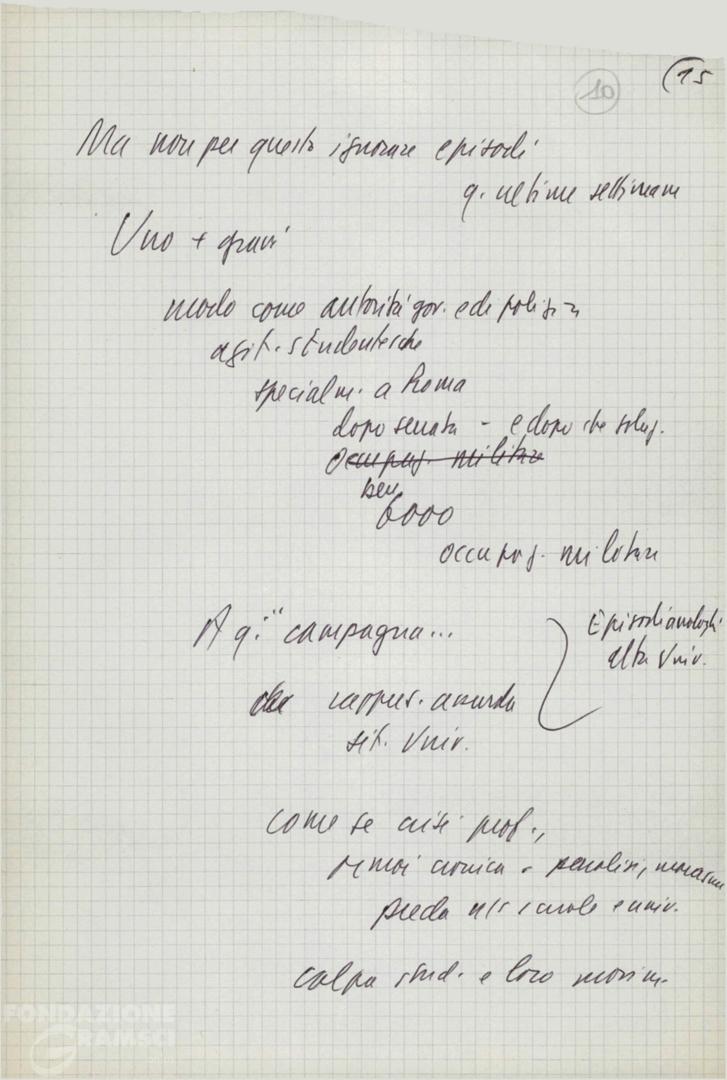 (15
10
Ma non per questo ignorare episodi
q. ultime settimane
Uno + gravi
modo come autorità gov. e di polizia
agit. studentesche
specialm. a Roma
dopo serrata - e dopo che
occupaz. militare
ben
6000
occupaz. militare
A q. " campagna...
Episodi analoghi
altre Univ.
rappres. assurda
sit. Univ.
come se crisi prof.,
ormai cronica - paralisi, marasma
preda ns scuole e univ.
colpa stud. e loro movim.
FONDAZIONE
GRAMSCI